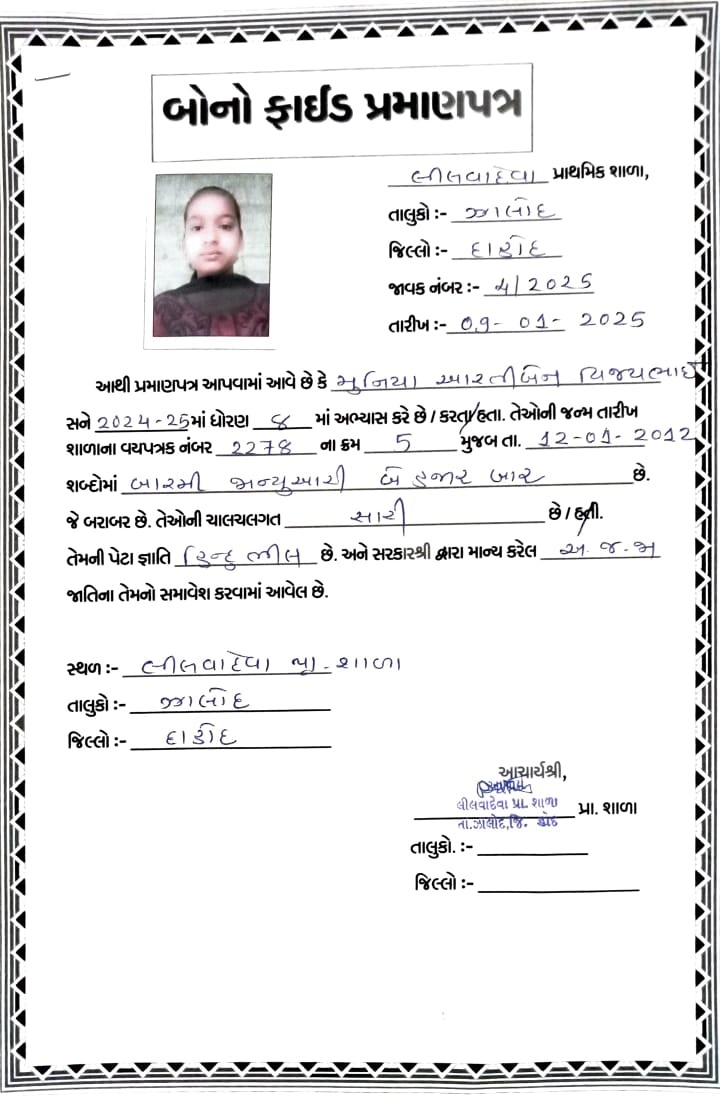 બોનો ફાઈડ પ્રમાણપત્ર
લીલવાદેવા પ્રાથમિક શાળા,
તાલુકો :- ઝાલોદ
જિલ્લો :- દાહોદ
જાવક નંબર :- 4/2025
તારીખ :- 09-01-2025
આથી પ્રમાણપત્ર આપવામાં આવે છે કે મુનિયા આરતીબેન વિજયભાઈ
સને 2024-25માં ધોરણ 8 માં અભ્યાસ કરે છે / કરતા/હતા. તેઓની જન્મ તારીખ
શાળાના વયપત્રક નંબર 2278 ના ક્રમ 5 મુજબ તા. 12-01-2012
શબ્દોમાં બારમી જાન્યુઆરી બે હજાર બાર છે.
જે બરાબર છે. તેઓની ચાલચલગત સારી છે / હતી.
તેમની પેટા જ્ઞાતિ હિન્દુ ભીલ છે. અને સરકારશ્રી દ્વારા માન્ય કરેલ અ.જ.જા
જાતિના તેમનો સમાવેશ કરવામાં આવેલ છે.
સ્થળ :- લીલવાદેવા પ્રા. શાળા
તાલુકો :- ઝાલોદ
જિલ્લો :- દાહોદ
આચાર્યશ્રી,
લીલવાદેવા પ્રા. શાળા પ્રા. શાળા
તા.ઝાલોદ,જિ. દાહોદ
તાલુકો. :-
જિલ્લો :-